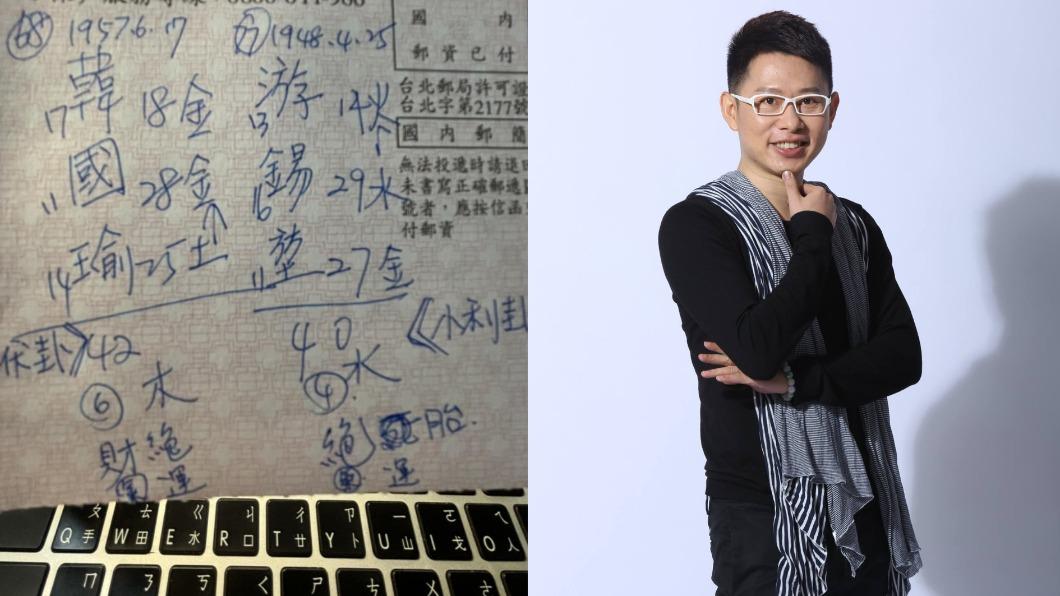 0800-011-966
68 1957.6.17 77 1948.4.25
韓 游
17 18金 13 14火
國 錫
11 28金 16 29水
瑜 堃
14 25土 11 27金
42 40 《小利卦
木 水
⑥ ④
財 絕 絕 胎.
運 運
國 內
郵資已付
台北郵局許可證
台北字第2177號
國內郵簡
無法投遞時請退回
未書寫正確郵遞區
號者，應按信函
付郵資
Q 手 ㄆ W 田 ㄊ E 水 ㄍ R 口 ㄐ T 廿 ㄔ Y 卜 ㄗ U 山 ㄧ I 戈 ㄛ O 人 ㄟ
ㄇ ㄋ ㄎ ㄑ ㄕ ㄘ ㄨ ㄜ